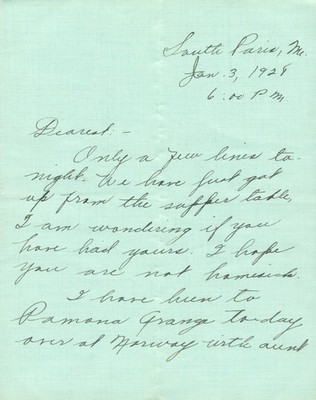 South Paris, Me.
Jan. 3, 1929
6:00 P M.
Dearest:-
Only a few lines to-
night. We have just got
up from the supper table,
I am wondering if you
have had yours. I hope
you are not homesick.
I have been to
Pomona Grange to-day
over at Norway with aunt